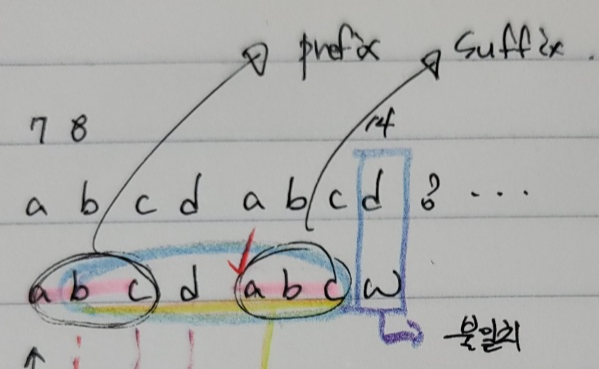 prefix suffix.
7 8 14
a b c d a b c d ? ...
a b c d a b c w
불일치